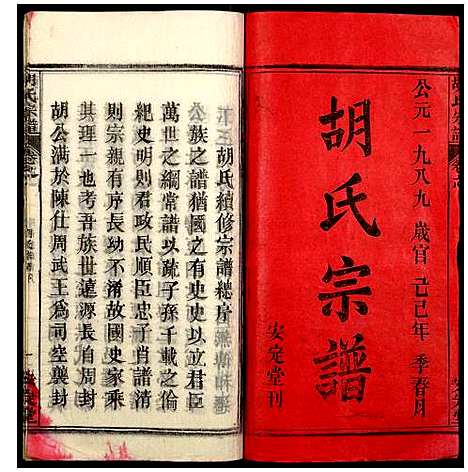 公元一九八九歲官己巳年季春月
胡氏宗譜
安定堂刊
胡氏續修宗譜總序
公族之譜猶國之有史史以立君臣
萬世之綱常譜以疏子孫千載之倫
紀史明則君政民順臣忠子肖譜清
則宗親有序長幼不淆故國史家乘
其理一也考吾族世遠源長自周封
胡公满於陳仕周武王爲司空襲封
胡氏宗譜